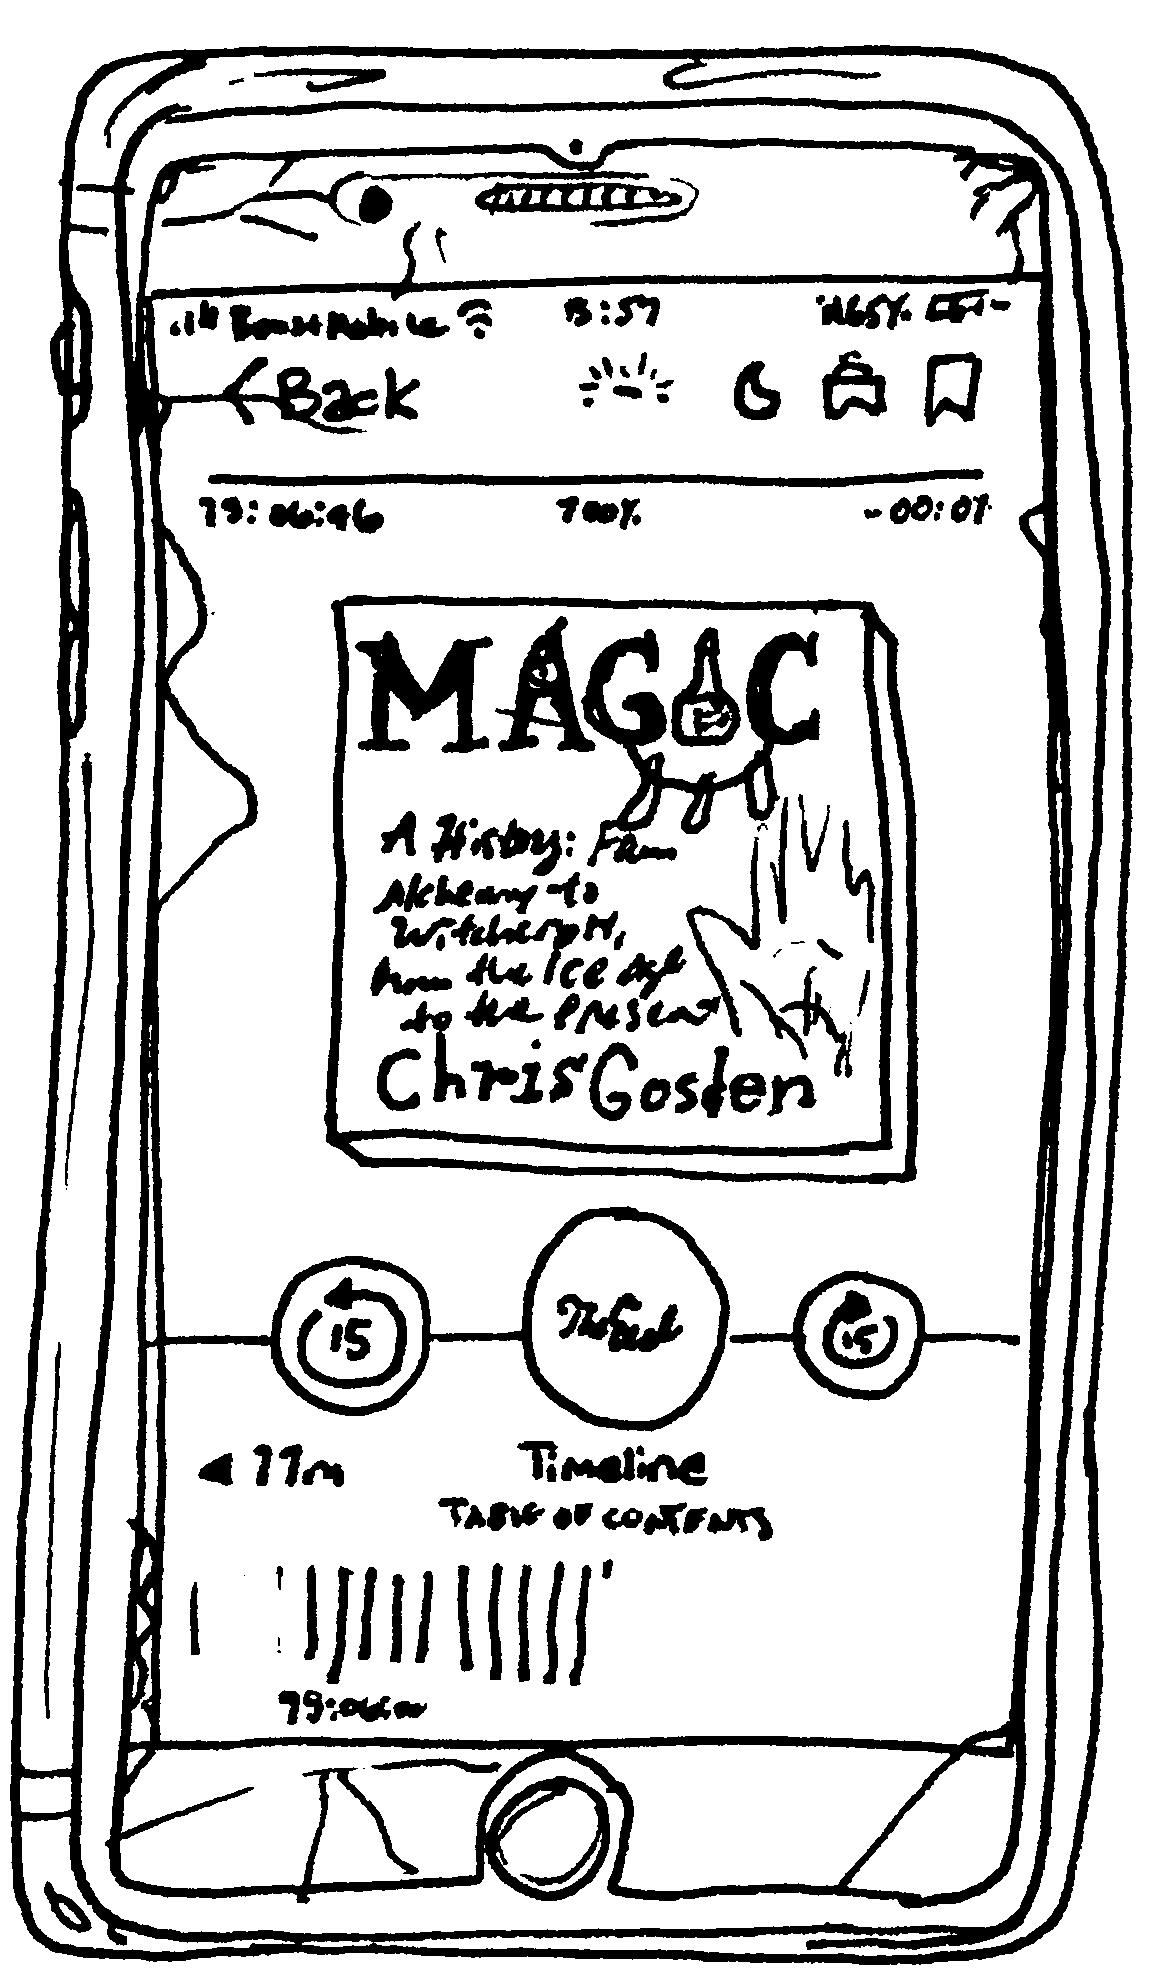 Boost Mobile 3:57 65%
Back
19:06:46 100% -00:01
MAGIC
A History: From
Alchemy to
Witchcraft,
from the Ice Age
to the Present
Chris Gosden
15 The End 15
11m Timeline
TABLE OF CONTENTS
19:06